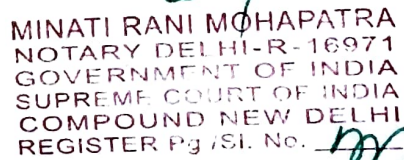 MINATI RANI MOHAPATRA
NOTARY DELHI-R-16971
GOVERNMENT OF INDIA
SUPREME COURT OF INDIA
COMPOUND NEW DELHI
REGISTER Pg /Sl. No.